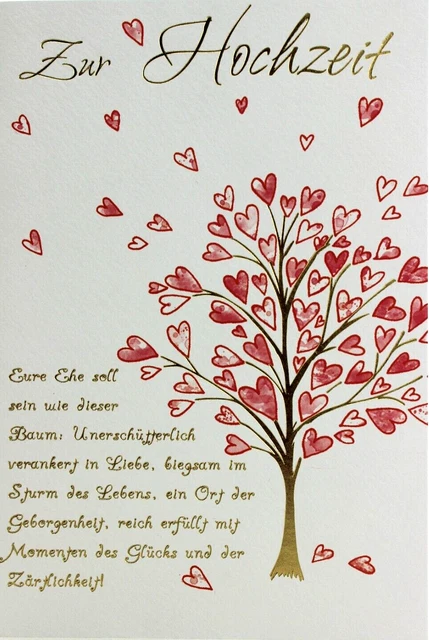 Zur Hochzeit
Eure Ehe soll
sein wie dieser
Baum: Unerschütterlich
verankert in Liebe, biegsam im
Sturm des Lebens, ein Ort der
Geborgenheit, reich erfüllt mit
Momenten des Glücks und der
Zärtlichkeit!